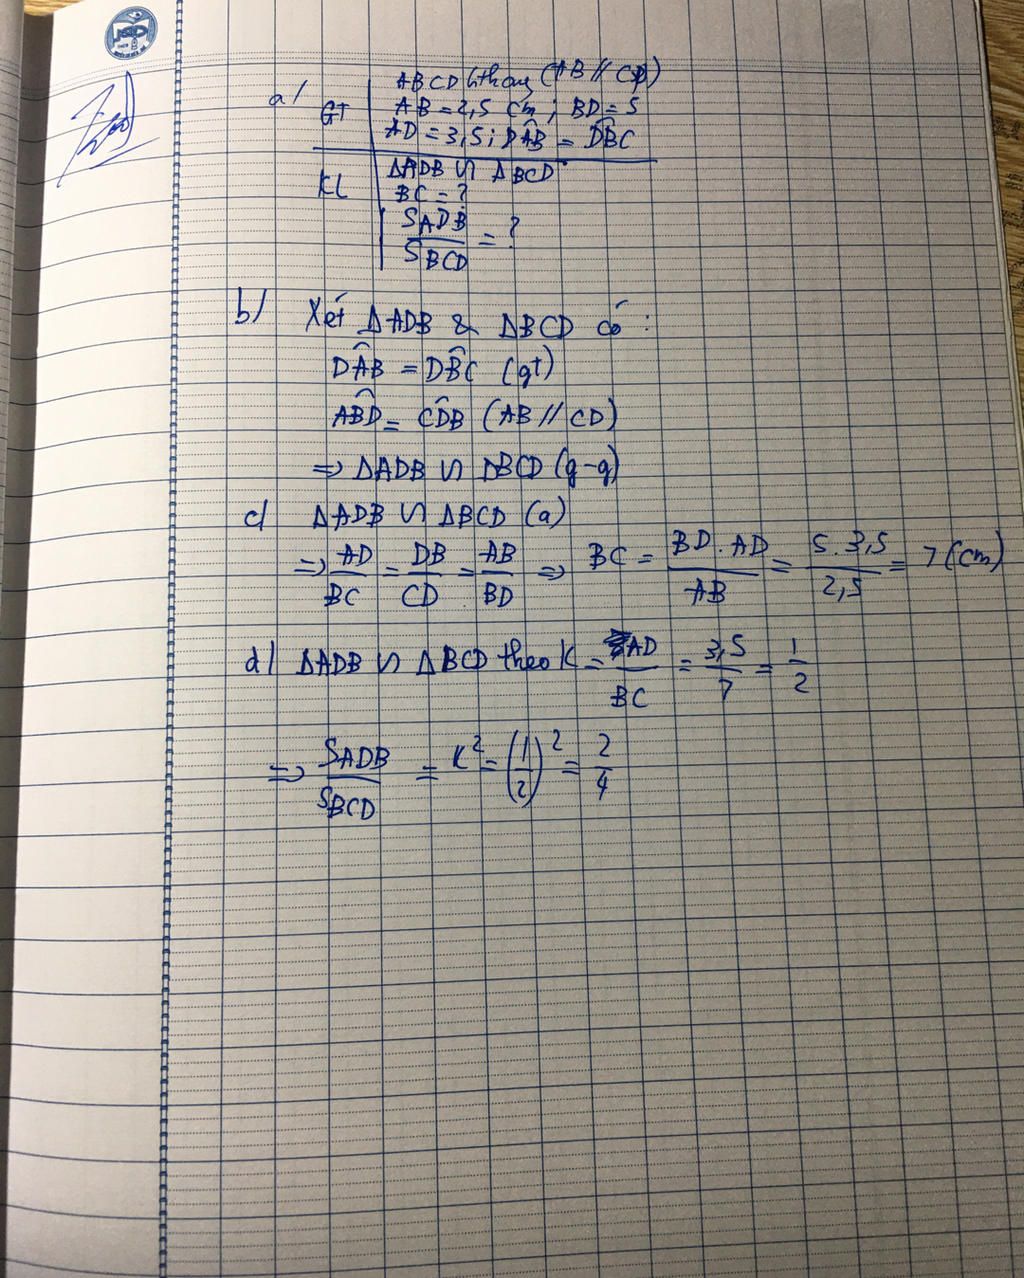 a/ GT ABCD hthang (AB // CD)
AB = 2,5 cm ; BD = 5
AD = 3,5 ; DÂB = DB̂C
KL ΔADB ∽ ΔBCD
BC = ?
S_ADB / S_BCD = ?
b/ Xét ΔADB & ΔBCD có :
DÂB = DB̂C (gt)
AB̂D = CD̂B (AB // CD)
=> ΔADB ∽ ΔBCD (g-g)
c/ ΔADB ∽ ΔBCD (a)
=> AD/BC = DB/CD = AB/BD => BC = BD . AD / AB = 5 . 3,5 / 2,5 = 7 (cm)
d/ ΔADB ∽ ΔBCD theo K = AD/BC = 3,5/7 = 1/2
=> S_ADB / S_BCD = K² = (1/2)² = 2/4